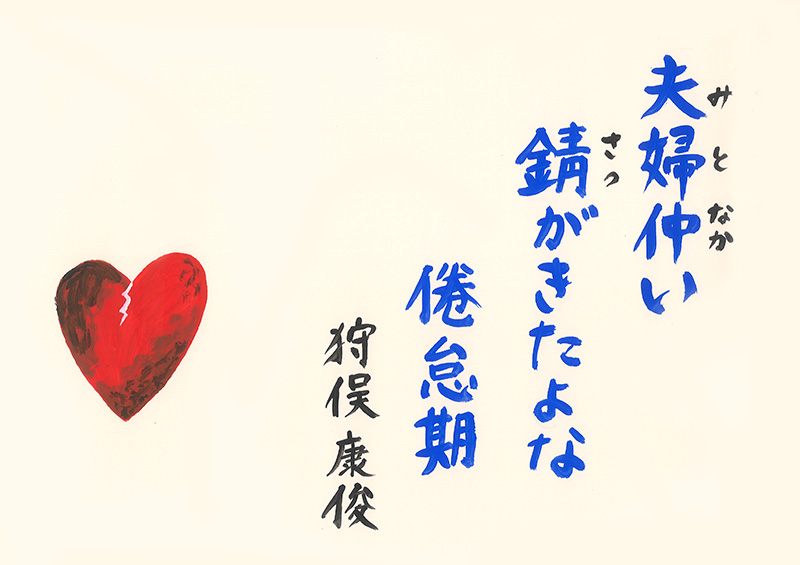 夫婦仲い
みとなか
錆がきたよな
さつ
倦怠期
狩俣康俊